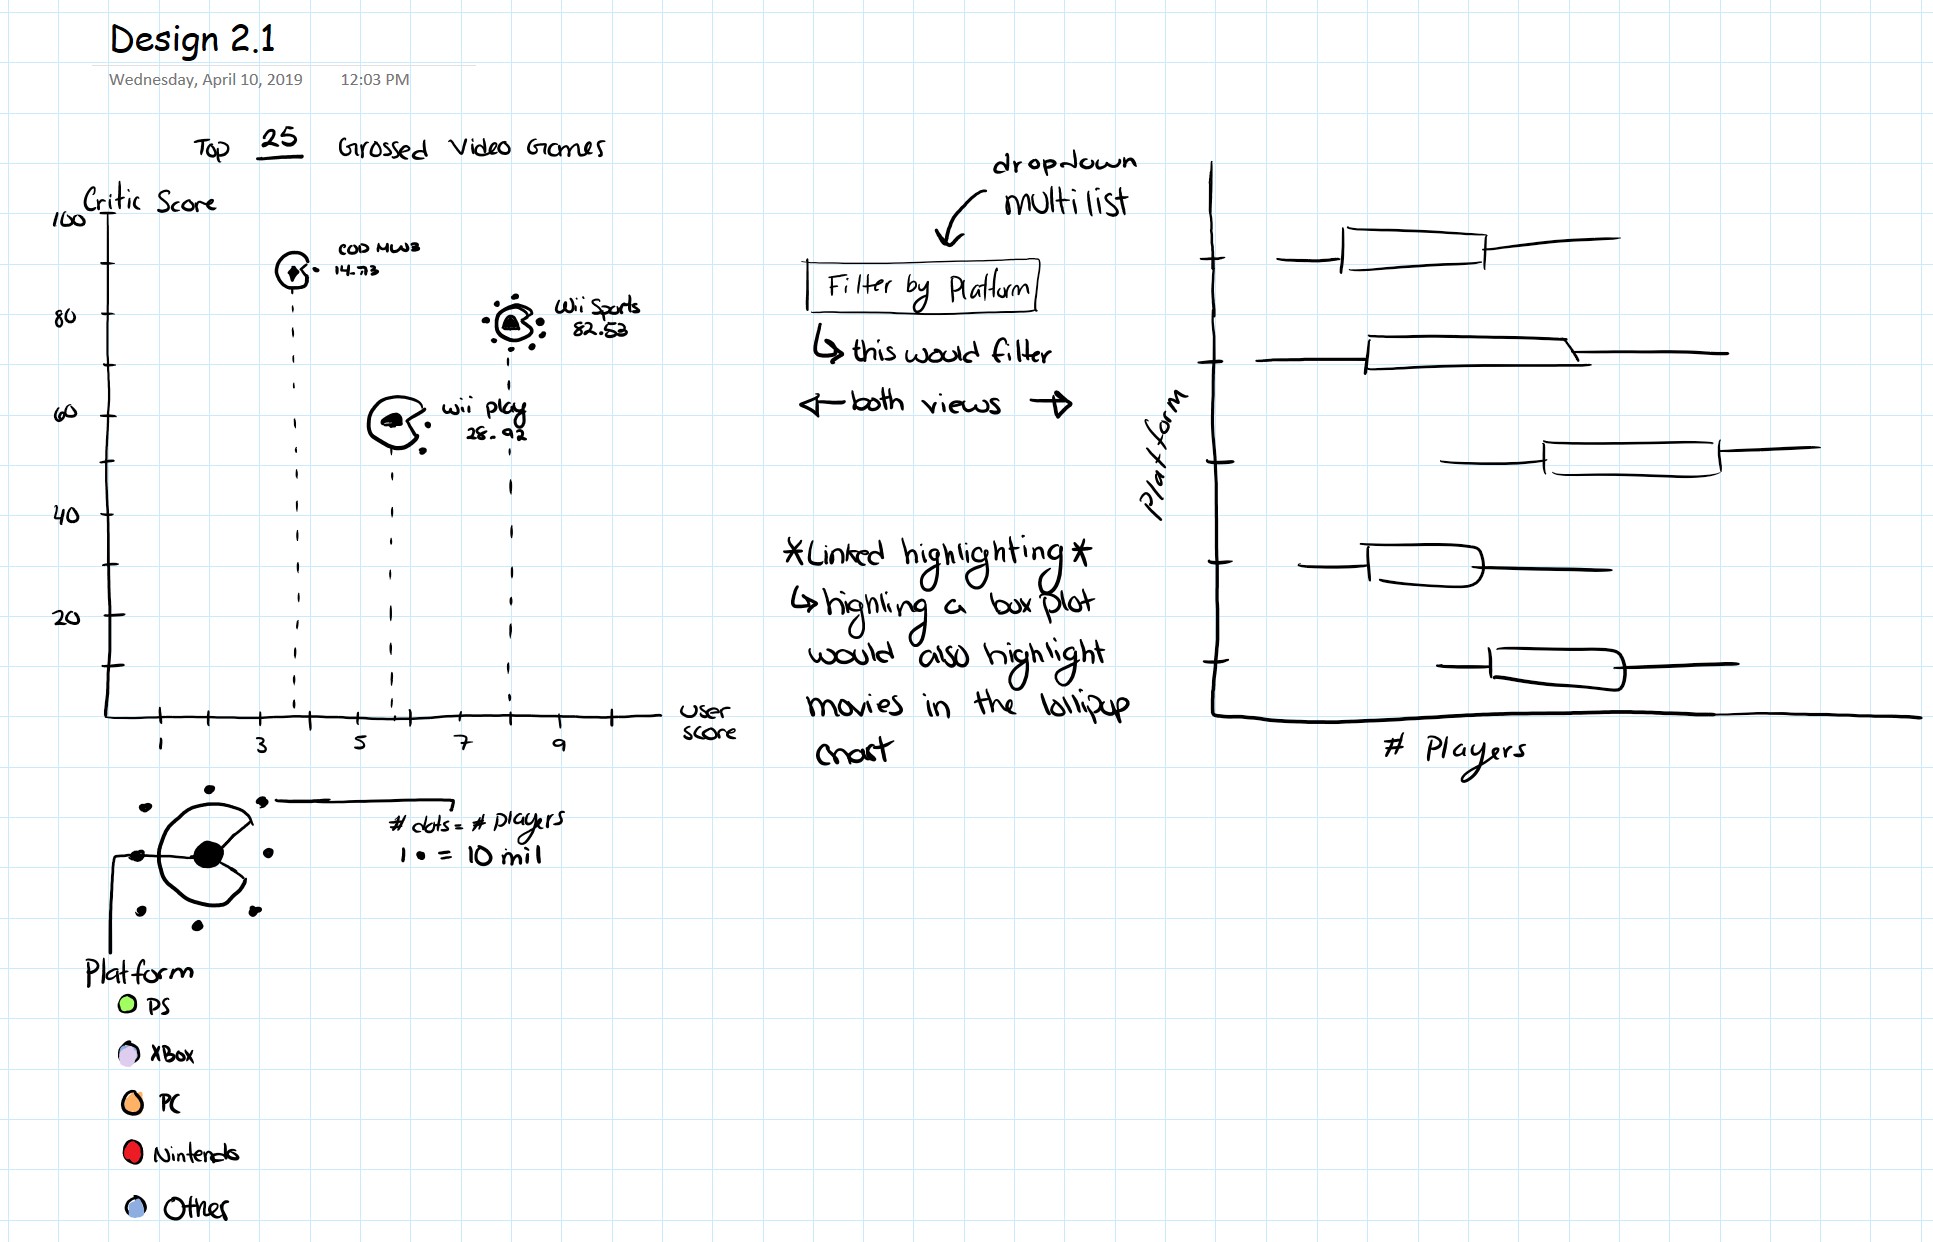 Design 2.1
Wednesday, April 10, 2019 12:03 PM
Top 25 Grossed Video Games
Critic Score
100
80
60
40
20
COD MW3
14.73
Wii Sports
82.53
Wii play
28.92
1 3 5 7 9
User
score
# dots = # Players
1 • = 10 mil
Platform
PS
XBox
PC
Nintendo
Other
dropdown
multilist
Filter by Platform
this would filter
both views
*Linked highlighting*
highling a box plot
would also highlight
movies in the lollipop
chart
Platform
# Players